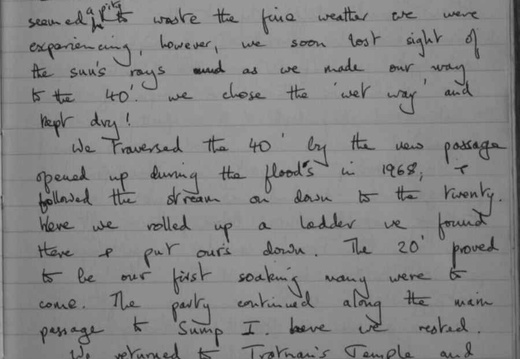 seemed a pity to waste the fine weather we were
experiencing, however, we soon lost sight of
the sun's rays and as we made our way
to the 40'. we chose the 'wet way' and
kept dry!
We Traversed the 40' by the new passage
opened up during the flood's in 1968, &
followed the stream on down to the twenty.
Here we rolled up a ladder we found
there & put ours down. The 20' proved
to be our first soaking many were to
come. The party continued along the main
passage to Sump I. here we rested.
We returned to Tratman's Temple and